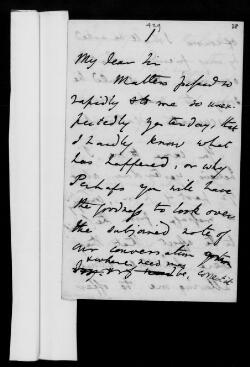 429
1
38
My dear Sir
Matters passed so
rapidly & to me so unex-
pectedly yesterday, that
I hardly know what
has happened, or why
Perhaps you will have
the goodness to look over
the subjoined note of
our conversation
& where need may
be, correct